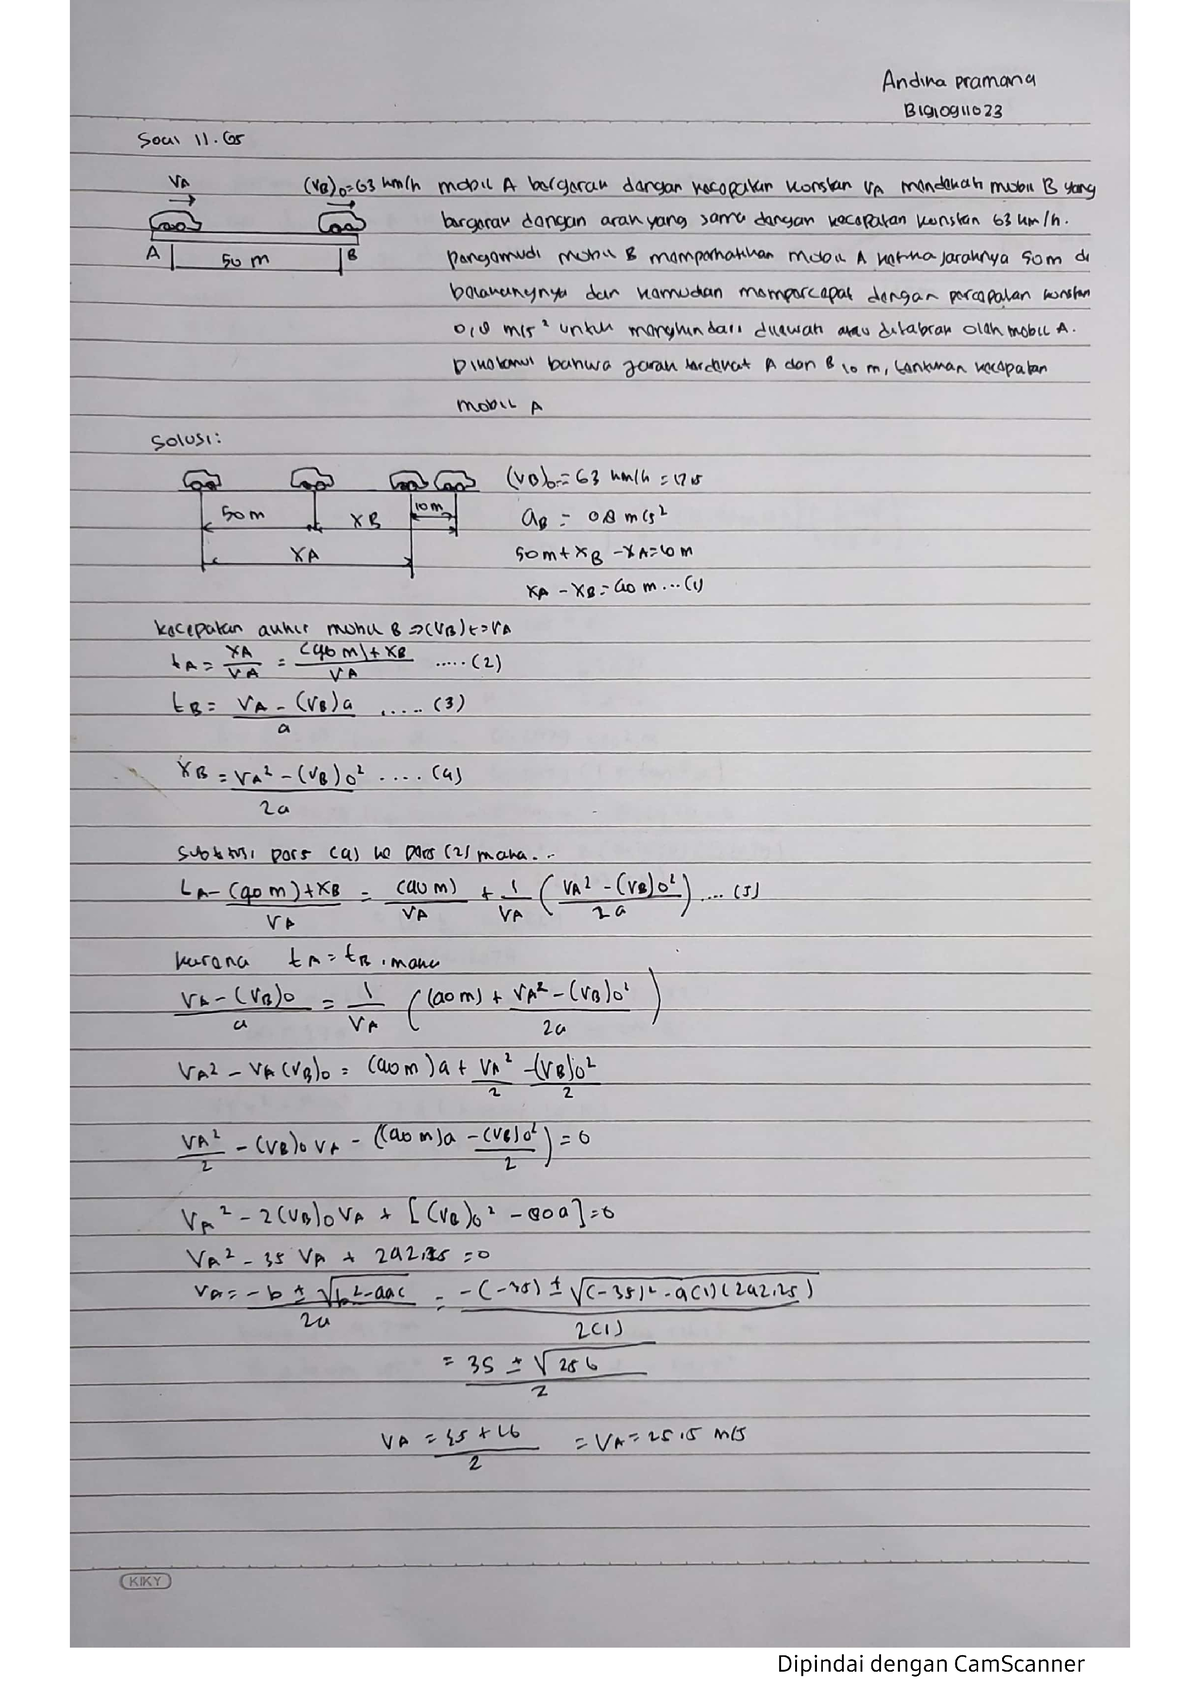 Andina Pramana
B1910911023
Soal 11.65
VA (VB)0=63 km/h mobil A bergerak dengan kecepatan konstan VA mendekati mobil B yang
bergerak dengan arah yang sama dengan kecepatan konstan 63 km/h.
A 50 m B pengemudi mobil B memperhatikan mobil A ketika jaraknya 50m di
belakangnya dan kemudian mempercepat dengan percepatan konstan
0,8 m/s² untuk menghindari dilewati atau ditabrak oleh mobil A.
Diketahui bahwa jarak terdekat A dan B 10 m, tentukan kecepatan
mobil A
Solusi:
(VB)0 = 63 km/h = 17.5
50m XB 10m aB = 0.8 m/s²
XA 50m + XB - XA = 10 m
XA - XB = 40 m ... (1)
kecepatan akhir mobil B => (VB)t = VA
tA = XA/VA = (40 m) + XB/VA ..... (2)
tB = VA - (VB)a/a ..... (3)
XB = VA² - (VB)0²/2a .... (4)
Subtitusi pers (4) ke pers (2) maka..
tA - (40 m) + XB/VA = (40 m)/VA + 1/VA (VA² - (VB)0²/2a) .... (5)
karena tA = tB . maka
VA - (VB)0/a = 1/VA ((40 m) + VA² - (VB)0²/2a)
VA² - VA (VB)0 = (40 m) a + VA²/2 - (VB)0²/2
VA²/2 - (VB)0 VA - ((40 m) a - (VB)0²/2) = 0
VA² - 2(VB)0 VA + [(VB)0² - 80a] = 0
VA² - 35 VA + 242.25 = 0
VA = -b ± √b²-4ac/2a = -(-35) ± √(-35)² - 4(1)(242.25)/2(1)
= 35 ± √256/2
VA = 35 + 16/2 = VA = 25.5 m/s
KIKY
Dipindai dengan CamScanner